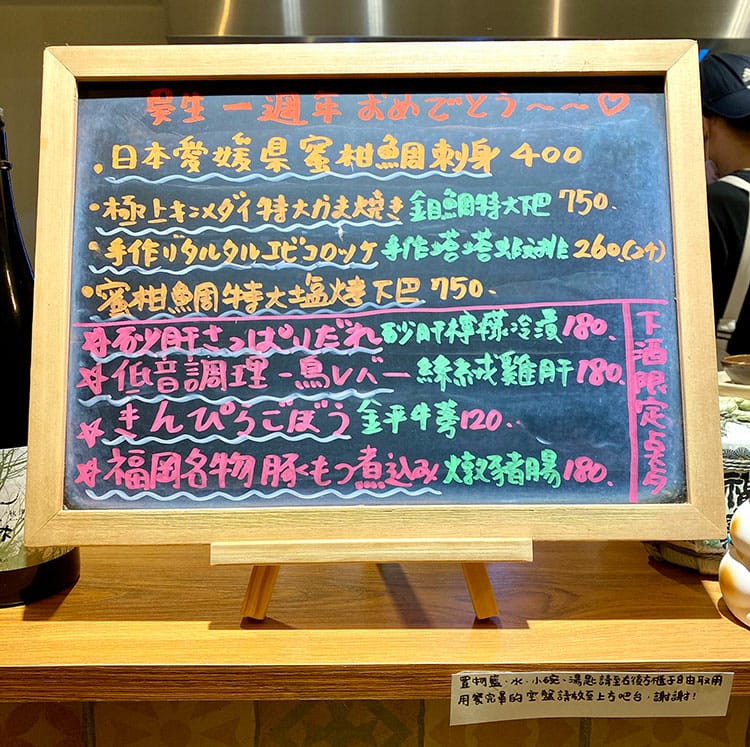 吳生一週年 おめでとう～～♡
・日本愛媛県蜜柑鯛刺身 400
・極上キンメダイ特大かま焼き 金目鯛特大下巴 750.
・手作りタルタルエビコロッケ 手作塔塔炸蝦排 260.(2个)
・蜜柑鯛特大塩烤下巴 750.
☆砂肝さっぱりだれ 砂肝檸檬冷漬 180.
☆低音調理-鳥レバー 綿絨雞肝 180.
☆きんぴらごぼう 金平牛蒡 120.
☆福岡名物豚もつ煮込み 燉豬腸 180.
下酒限定
置物籃、水、小碗、湯匙請至右後方櫃子自由取用
用餐完畢的空盤請放至上方吧台，謝謝！